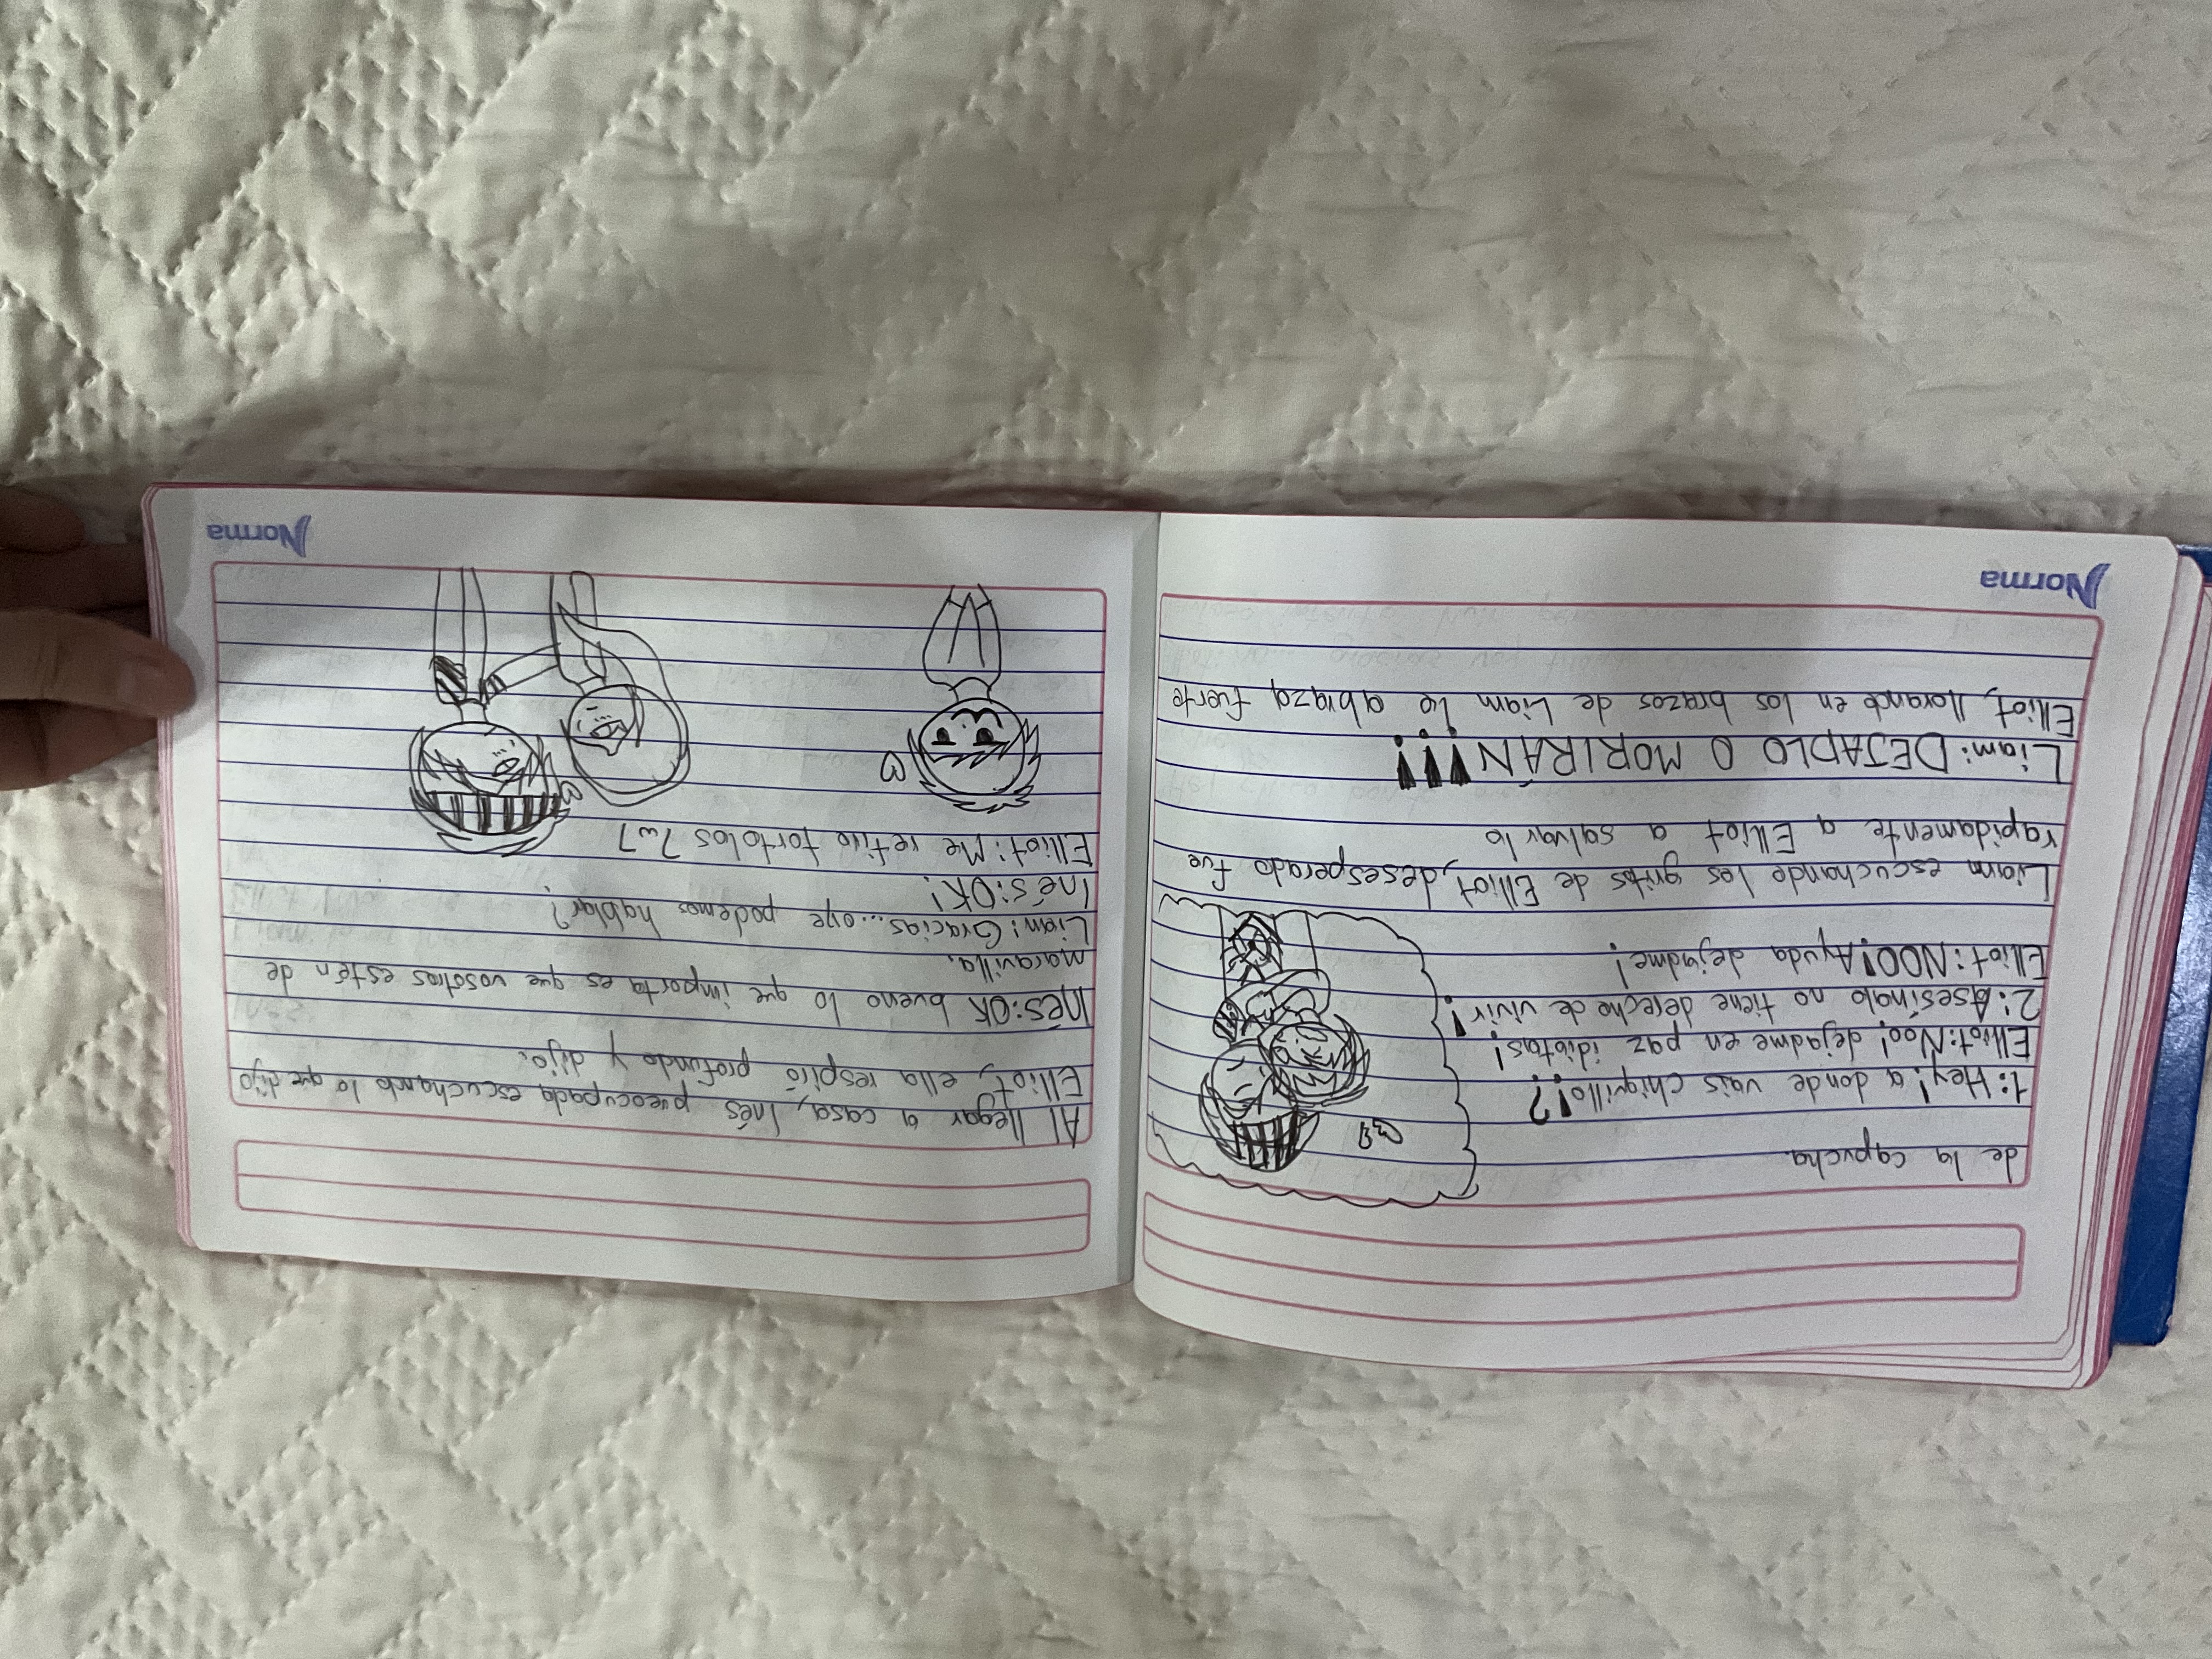 de la capucha.
1: Hey! a donde vais chiquillo!?
Elliot: Noo! dejadme en paz idiotas!
2: Asesínalo no tiene derecho de vivir!
Elliot: NOO! Ayuda dejadme!
Liam escuchando los gritos de Elliot, desesperado fue
rapidamente a Elliot a salvarlo
Liam: DEJADLO O MORIRÁN!!!
Elliot, llorando en los brazos de Liam le abraza fuerte
Norma
Al llegar a casa, Inés preocupada escuchando lo que dijo
Elliot, ella respiró profundo y dijo:
Inés: OK bueno lo que importa es que vosotros estén de
maravilla.
Liam: Gracias... oye podemos hablar?
Inés: OK!
Elliot: Me retiro tortolos 7w7
Norma